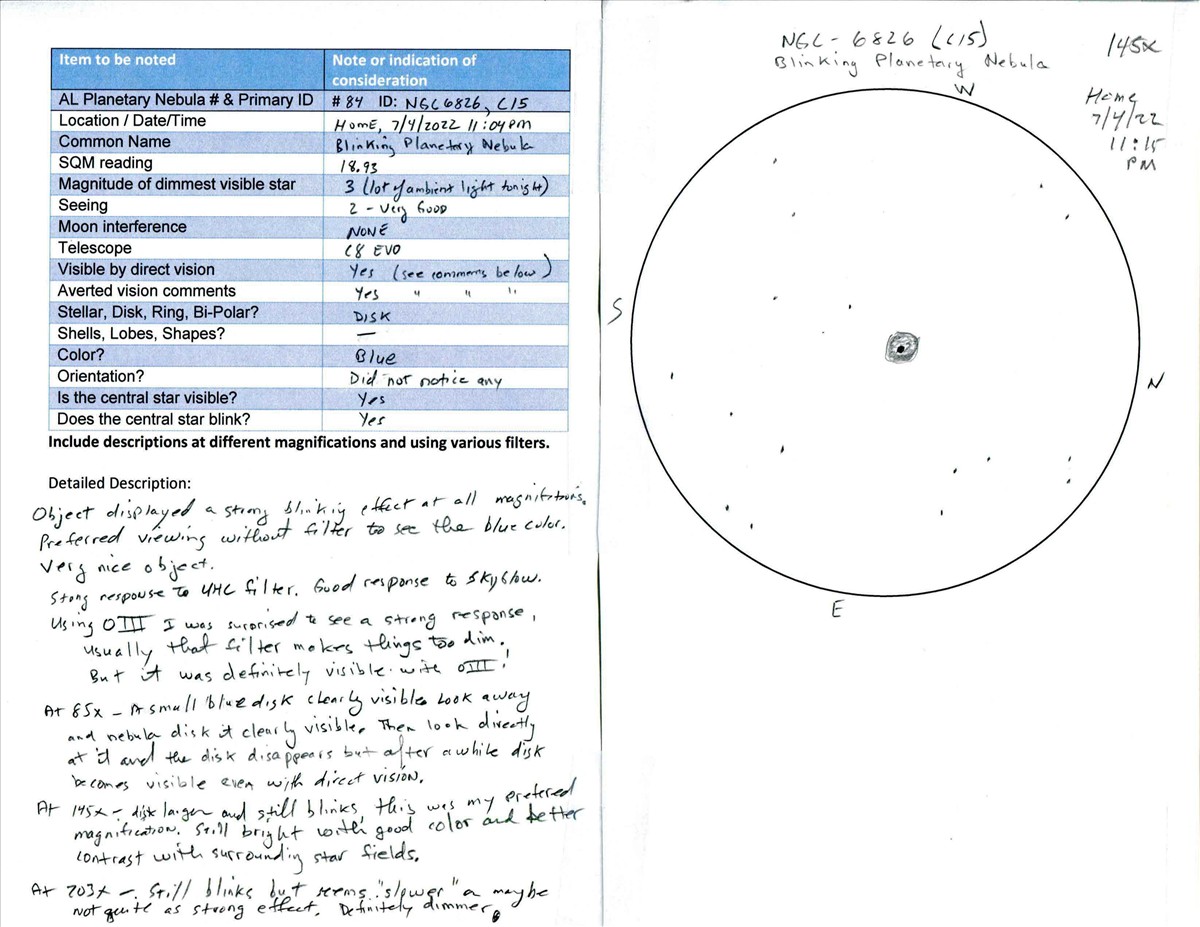 Item to be noted Note or indication of consideration
AL Planetary Nebula # & Primary ID # 84 ID: NGC6826, C15
Location / Date/Time Home, 7/4/2022 11:04pm
Common Name Blinking Planetary Nebula
SQM reading 18.93
Magnitude of dimmest visible star 3 (lot of ambient light tonight)
Seeing 2 - Very Good
Moon interference NONE
Telescope C8 EVO
Visible by direct vision Yes (see comments below)
Averted vision comments Yes " " "
Stellar, Disk, Ring, Bi-Polar? DISK
Shells, Lobes, Shapes? —
Color? Blue
Orientation? Did not notice any
Is the central star visible? Yes
Does the central star blink? Yes
Include descriptions at different magnifications and using various filters.
Detailed Description:
Object displayed a strong blinking effect at all magnifications.
Preferred viewing without filter to see the blue color.
Very nice object.
Stong response to UHC filter. Good response to SkyGlow.
Using OIII I was surprised to see a strong response,
usually that filter makes things too dim.
But it was definitely visible with OIII!
At 85x - A small blue disk clearly visible. Look away
and nebula disk it clearly visible. Then look directly
at it and the disk disappears but after awhile disk
becomes visible even with direct vision.
At 145x - disk larger and still blinks, this was my prefered
magnification. Still bright with good color and better
contrast with surrounding star fields.
At 203x - Still blinks but seems "slower" or maybe
not quite as strong effect. Definitely dimmer.
NGC-6826 (C15)
Blinking Planetary Nebula
145x
Home
7/4/22
11:15
PM
W
S
N
E